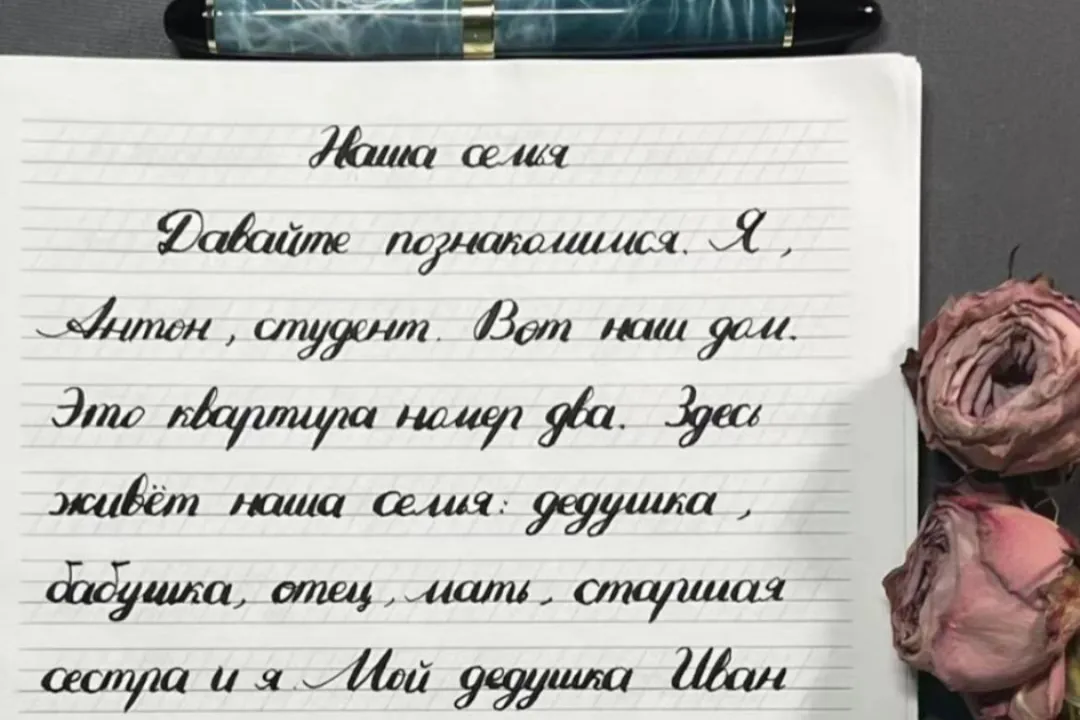 Наша семья
Давайте познакомимся. Я,
Антон, студент. Вот наш дом.
Это квартира номер два. Здесь
живёт наша семья: дедушка,
бабушка, отец, мать, старшая
сестра и я. Мой дедушка Иван